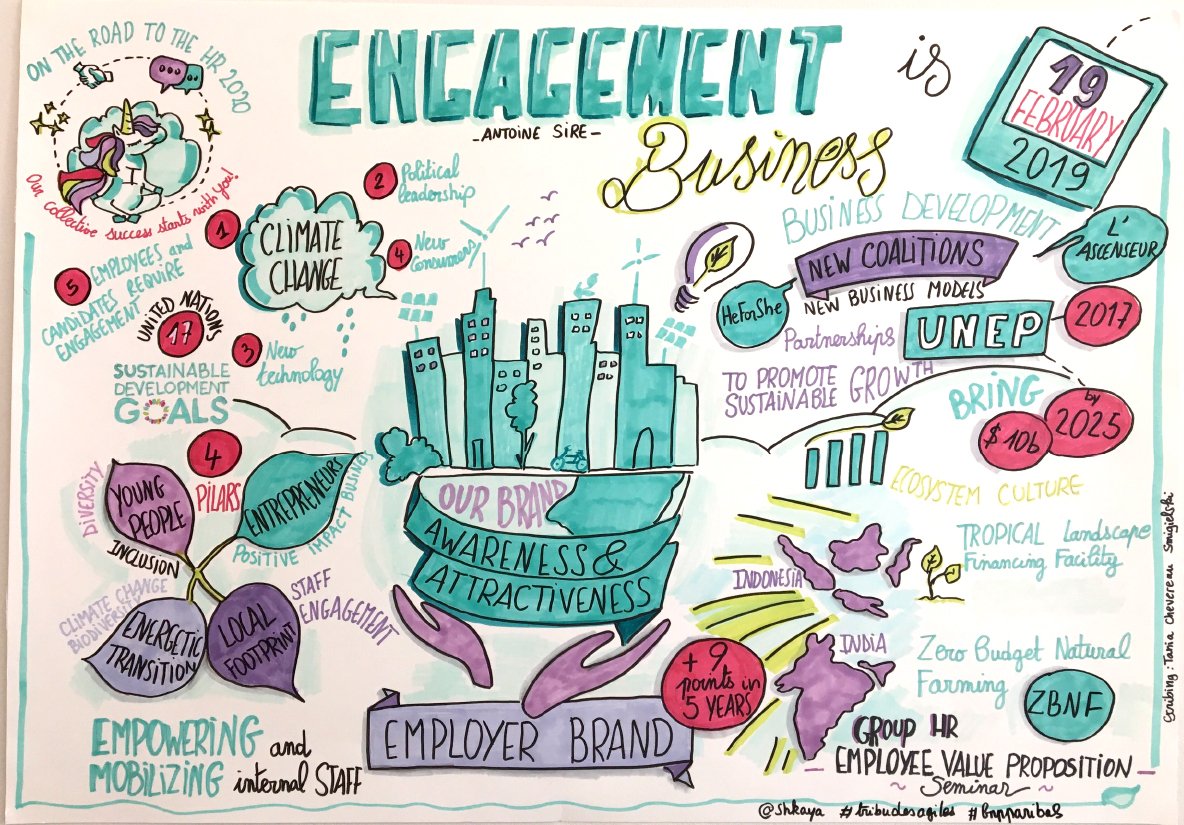 ON THE ROAD TO THE HR 2020
Our collective success starts with you!
ENGAGEMENT
- ANTOINE SIRE -
is
Business
19
FEBRUARY
2019
1
CLIMATE
CHANGE
2
Political
leadership
4
New
Consumers
3
New
technology
5
EMPLOYEES and
CANDIDATES REQUIRE
ENGAGEMENT
UNITED NATIONS
17
SUSTAINABLE
DEVELOPMENT
GOALS
BUSINESS DEVELOPMENT
L'
ASCENSEUR
NEW COALITIONS
HeForShe
NEW BUSINESS MODELS
Partnerships
UNEP
2017
TO PROMOTE
SUSTAINABLE GROWTH
BRING
$ 10b
by
2025
ECOSYSTEM CULTURE
4
PILARS
DIVERSITY
YOUNG
PEOPLE
INCLUSION
ENTREPRENEURS
POSITIVE IMPACT BUSINESS
CLIMATE CHANGE
BIODIVERSITY
ENERGETIC
TRANSITION
LOCAL
FOOTPRINT
STAFF
ENGAGEMENT
OUR BRAND
AWARENESS &
ATTRACTIVENESS
EMPLOYER BRAND
+ 9
points in
5 YEARS
INDONESIA
TROPICAL Landscape
Financing Facility
INDIA
Zero Budget Natural
Farming
ZBNF
EMPOWERING and
MOBILIZING internal STAFF
GROUP HR
- EMPLOYEE VALUE PROPOSITION -
~ Seminar ~
@shkaya #tribudesagiles #bnpparibas
Scribing : Tania Chevereau Smigielski